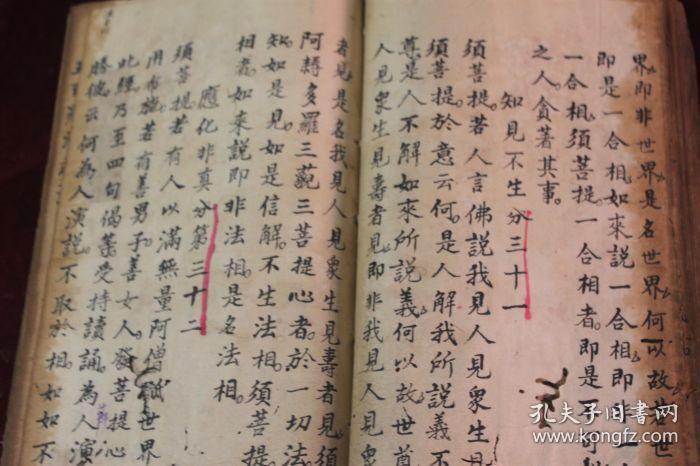 界即非世界是名世界何以故若世
即是一合相。如來說一合相。即非一
一合相。須菩提。一合相者。即是不可
之人。貪著其事。
知見不生分三十一
須菩提。若人言佛說我見人見衆生見
須菩提。於意云何。是人解我所說義不
尊。是人不解如來所說義。何以故。世尊
人見衆生見壽者見。即非我見人見
者見。是名我見人見衆生見壽者見。須
阿耨多羅三藐三菩提心者。於一切法
知。如是見。如是信解。不生法相。須菩提
相者。如來說即非法相。是名法相。
應化非真分第三十二
須菩提。若有人以滿無量阿僧祇世界
用布施。若有善男子。善女人。發菩提心
此經。乃至四句偈等。受持讀誦。為人演
勝彼。云何為人演說。不取於相。如如不
孔夫子旧书网
www.kongfz.com